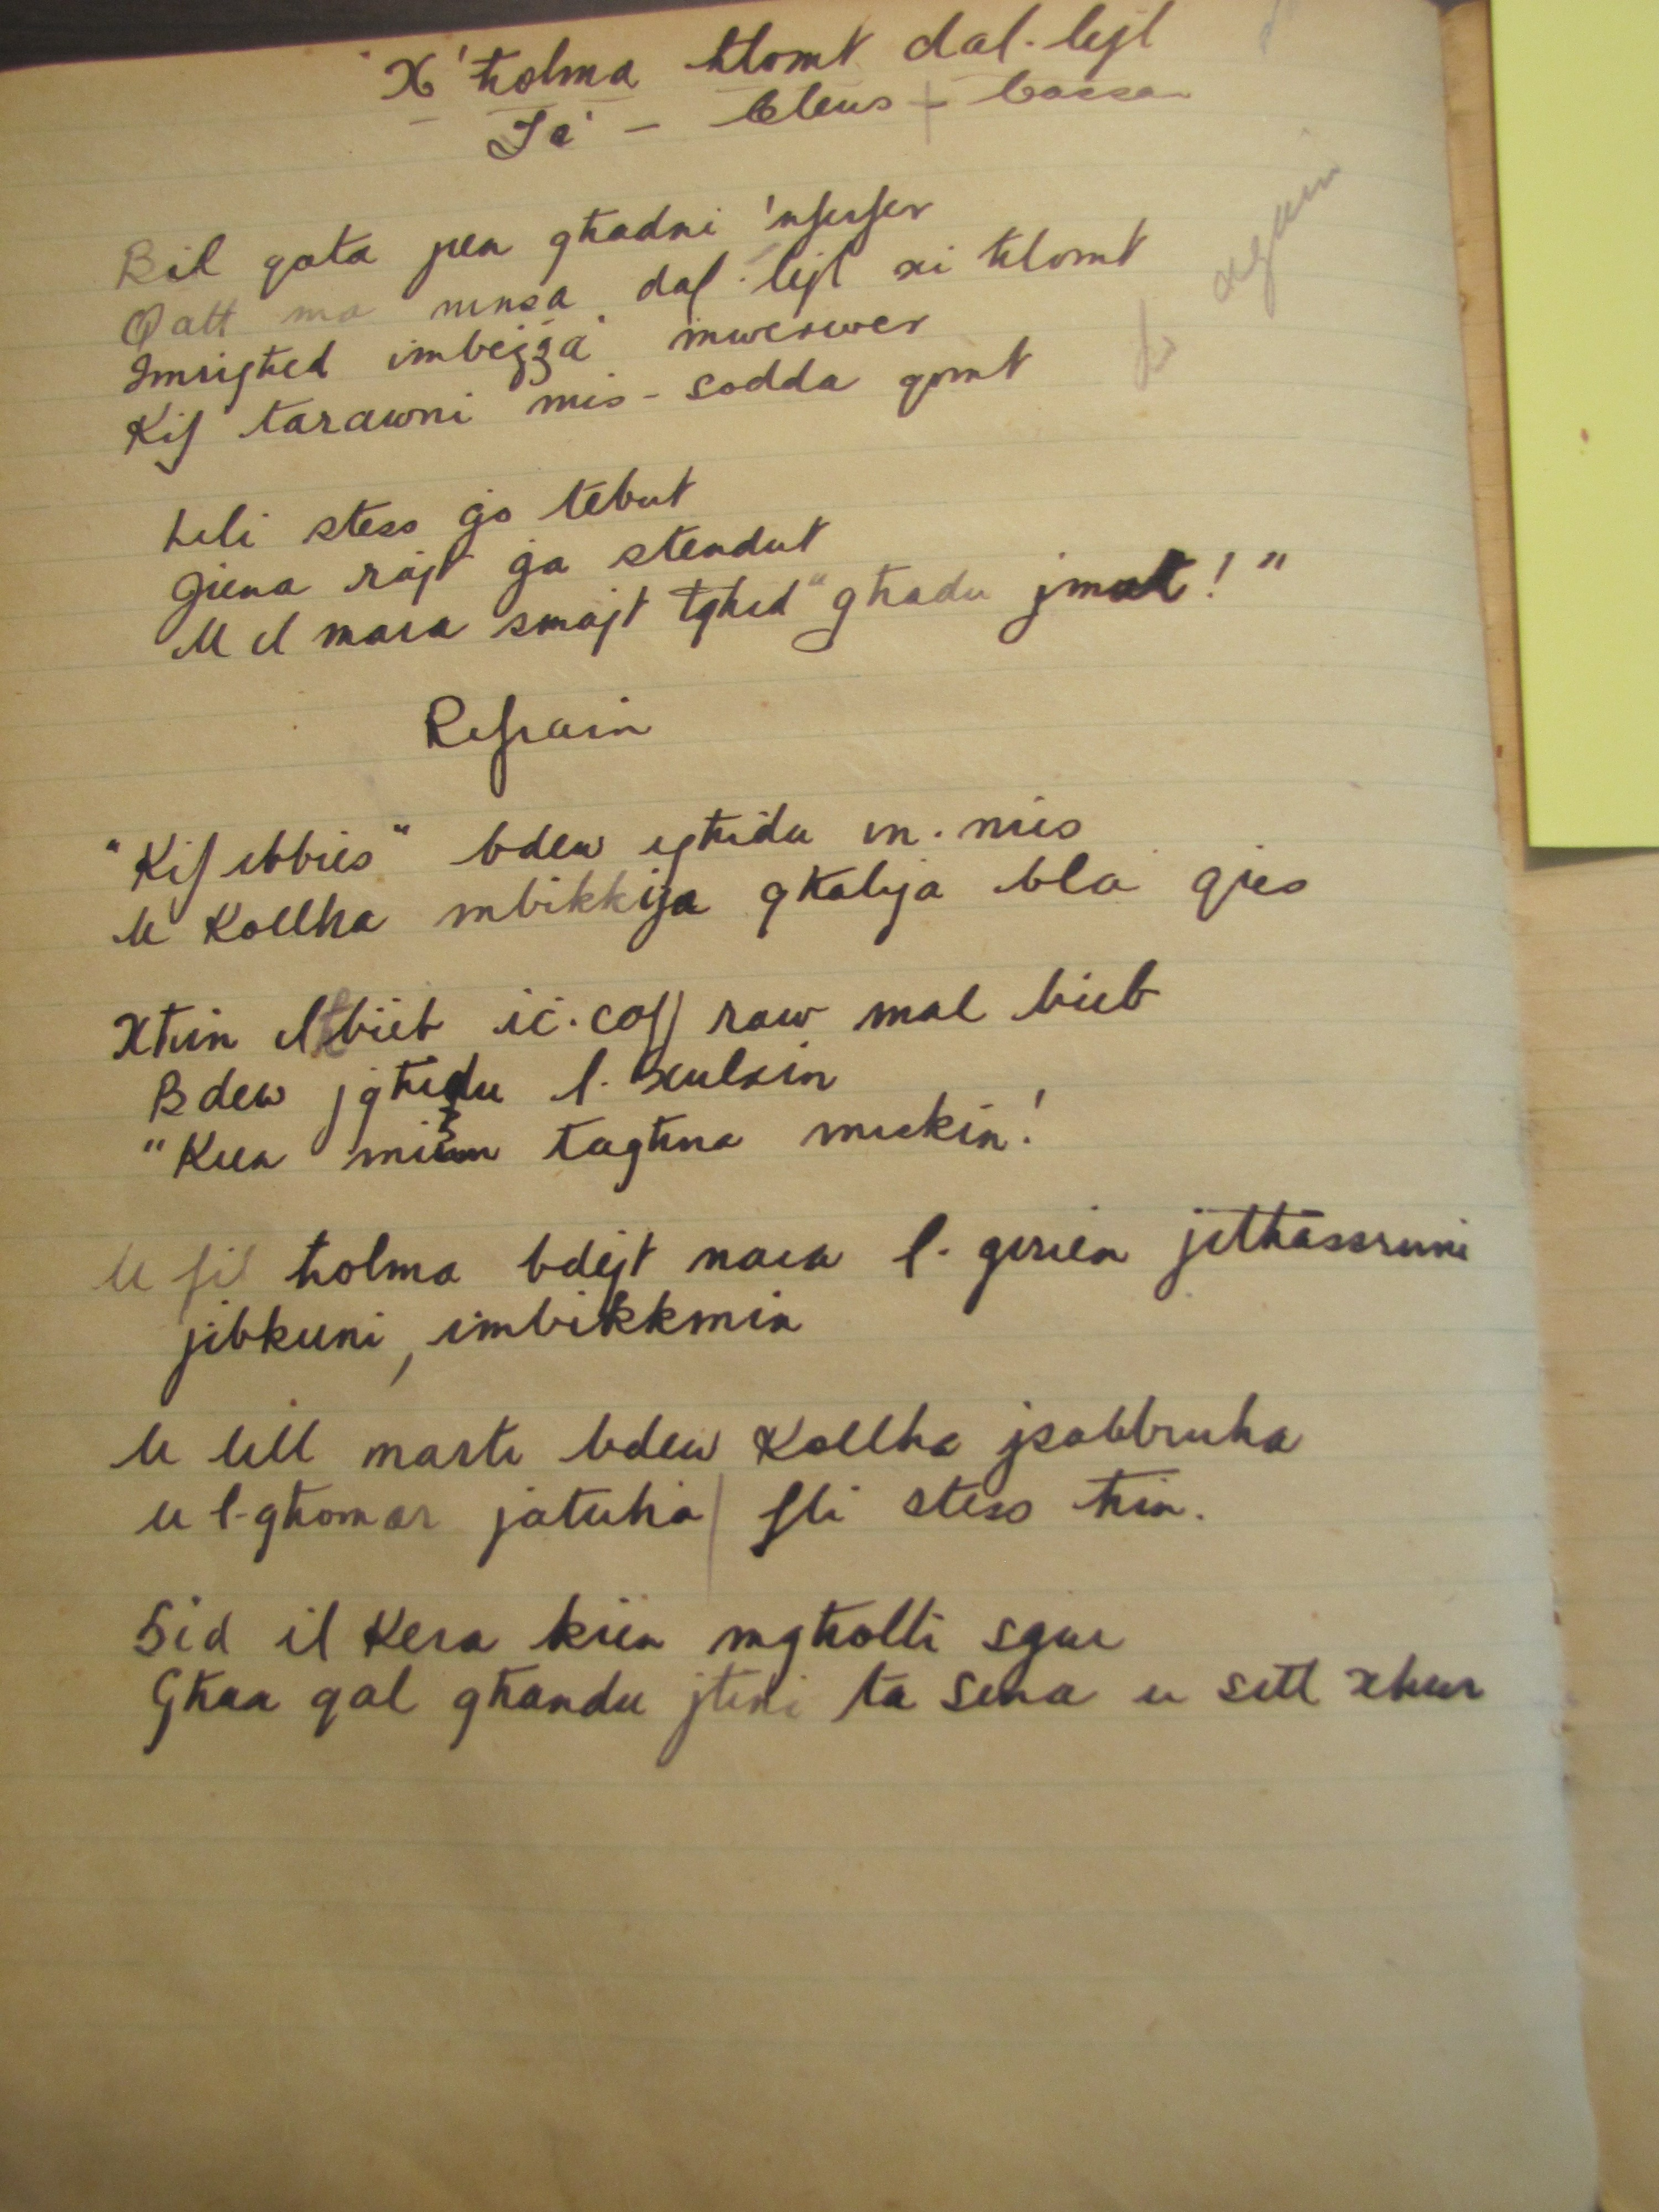 X'ħolma ħlomt dal-lejl
Bil qata jien għadni 'nferfer
Qatt ma ninsa dal-lejl xi ħlomt
Imriegħed imbeżża' mwerwer
Kif tarawni mis-sodda qomt
Lili stess ġo tebut
Jiena rajt ġa stendut
U il mara smajt tgħid "għadu jmut!"
Refrain
"Kif ibbies" bdew igħidu in-nies
U Kollha mbikkija għalija bla qies
Xħin it-tbieb iċ-ċoff raw mal bieb
Bdew jgħidu l-Bxulxin
"Kien minn tagħna miskin!
U fil ħolma bdejt nara l-ġirien jitħassruni
jibkuni, imbikkmin
U lill marti bdew Kollha jsabbruha
u l-għomor jatuha fli stess ħin.
Sid il Kera kien mgħolli sgur
Għax qal għandu jtini ta sena u sitt xhur